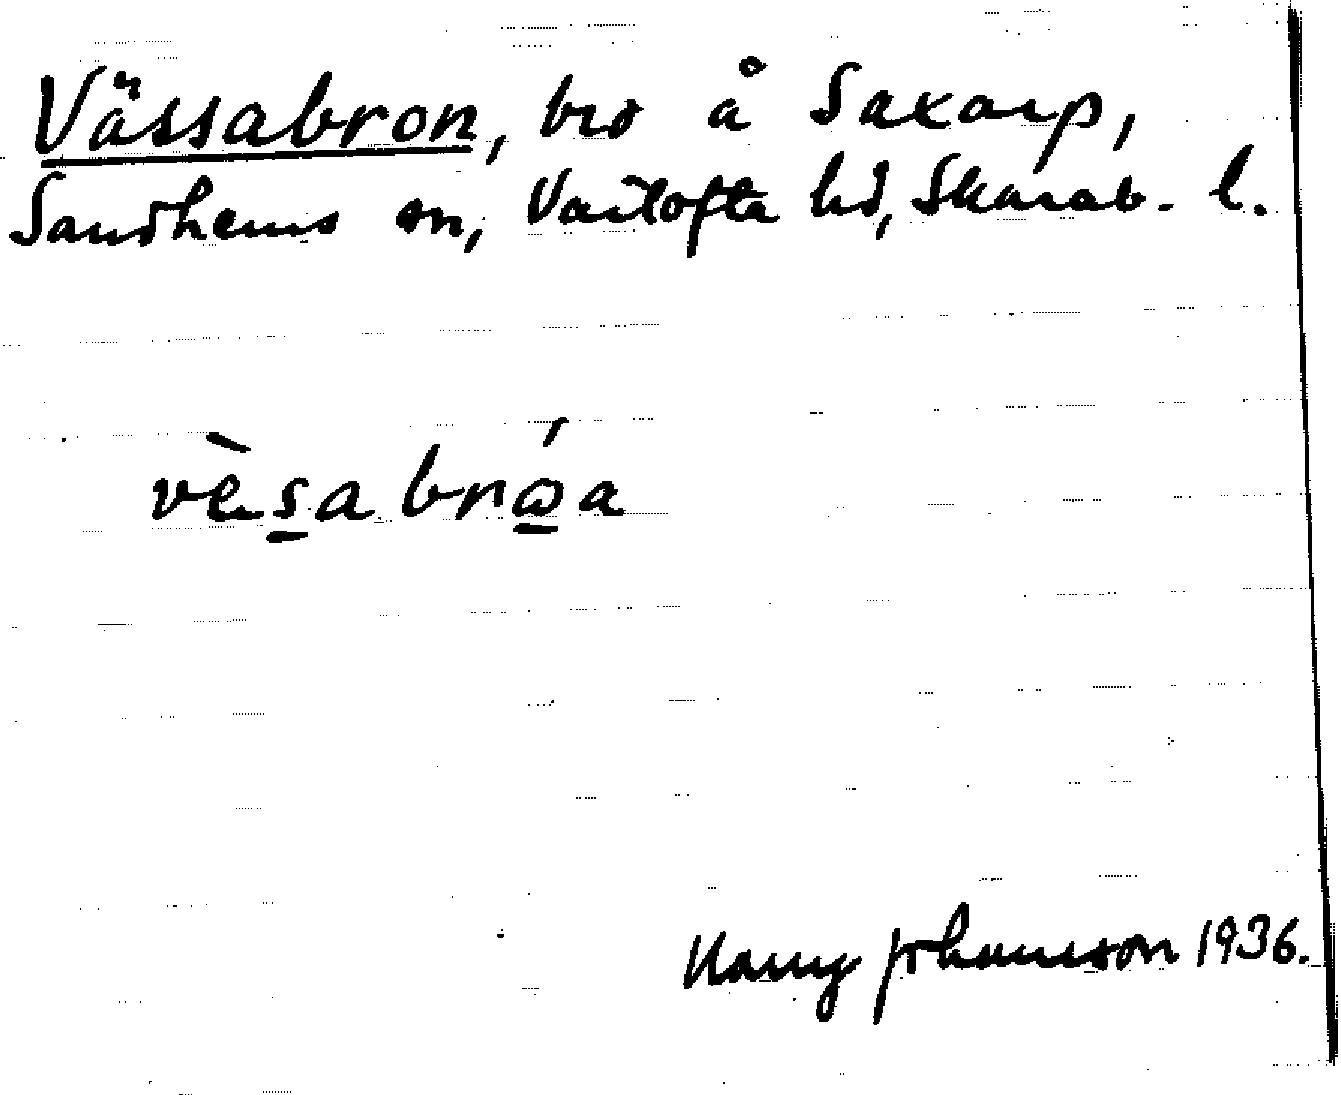 Vässabron, bro å Saxarp,
Sandhems sn, Vartofta hd, Skarab. l.
vèsa brǿa
Harry Johansson 1936.